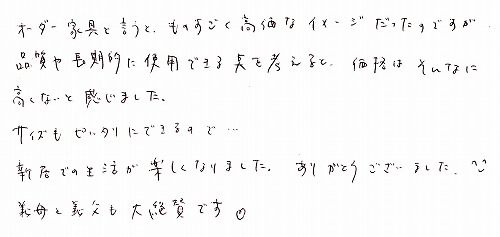 オーダー家具と言うと、ものすごく高価なイメージだったのですが
品質や長期的に使用できる点を考えると、価格はそんなに
高くないと感じました。
サイズもピッタリにできるので…
新居での生活が楽しくなりました。ありがとうございました。
義母と義父も大絶賛です。